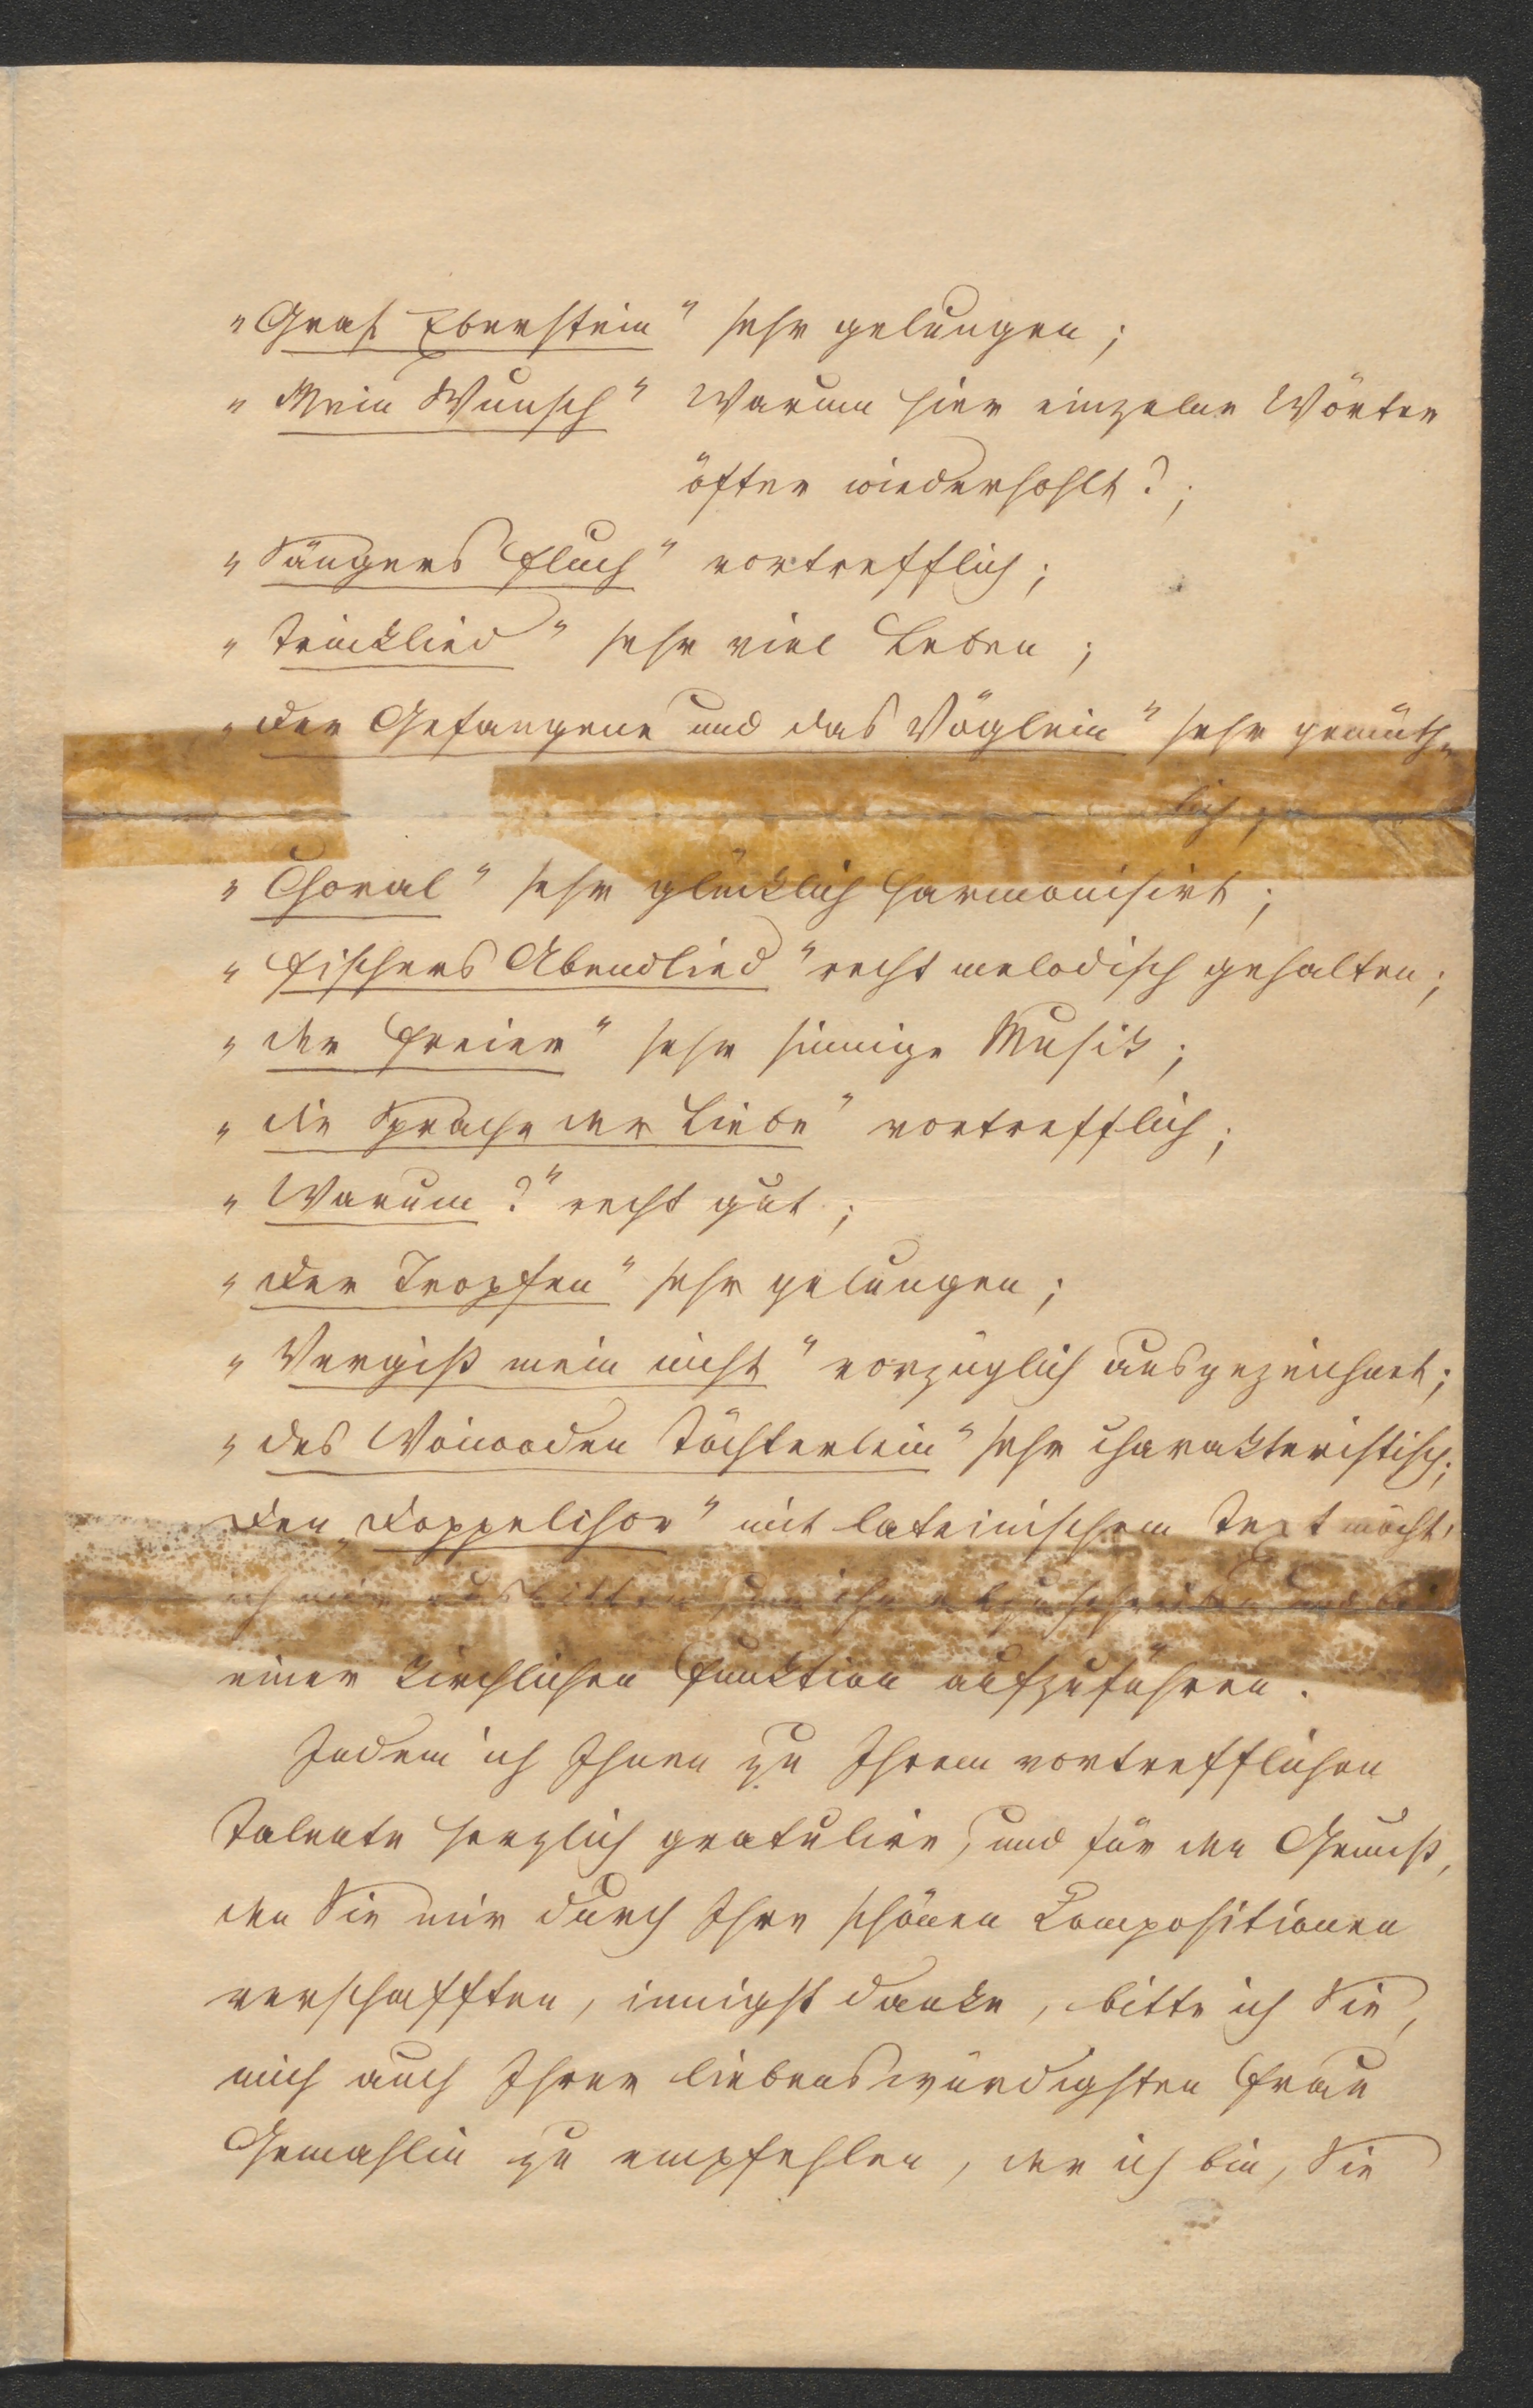 „Graf Eberstein“ sehr gelungen;
„Mein Wunsch“ Warum hier einzelne Wörter
öfter wiederhohlt?;
„Sängers Fluch“ vortrefflich;
„Trincklied“ sehr viel Leben;
„Der Gefangene und das Vöglein“ sehr gemüth„
lich;
„Choral“ sehr glücklich harmonisirt;
„Fischers Abendlied“ recht melodisch gehalten;
„der Freier“ sehr sinnige Musik;
„die Sprache der Liebe“ vortrefflich;
„Warum?“ recht gut;
„Der Tropfen“ sehr gelungen;
„Vergiß mein nicht“ vorzüglich ausgezeichnet;
„des Woiwoden Töchterlein“ sehr charakteristisch;
Den „Doppelchor“ mit lateinischem Text möcht'
ich mir ausbitten, um ihn abzuschreiben und bei
einer kirchlichen Funktion aufzuführen.
Indem ich Ihnen zu Ihrem vortrefflichen
Talente herzlich gratulire, und für den Genuß,
den Sie mir durch Ihre schönen Compositionen
verschafften, innigst danke, bitte ich Sie,
mich auch Ihrer liebenswürdigsten Frau
Gemahlin zu empfehlen, der ich bin, Sie